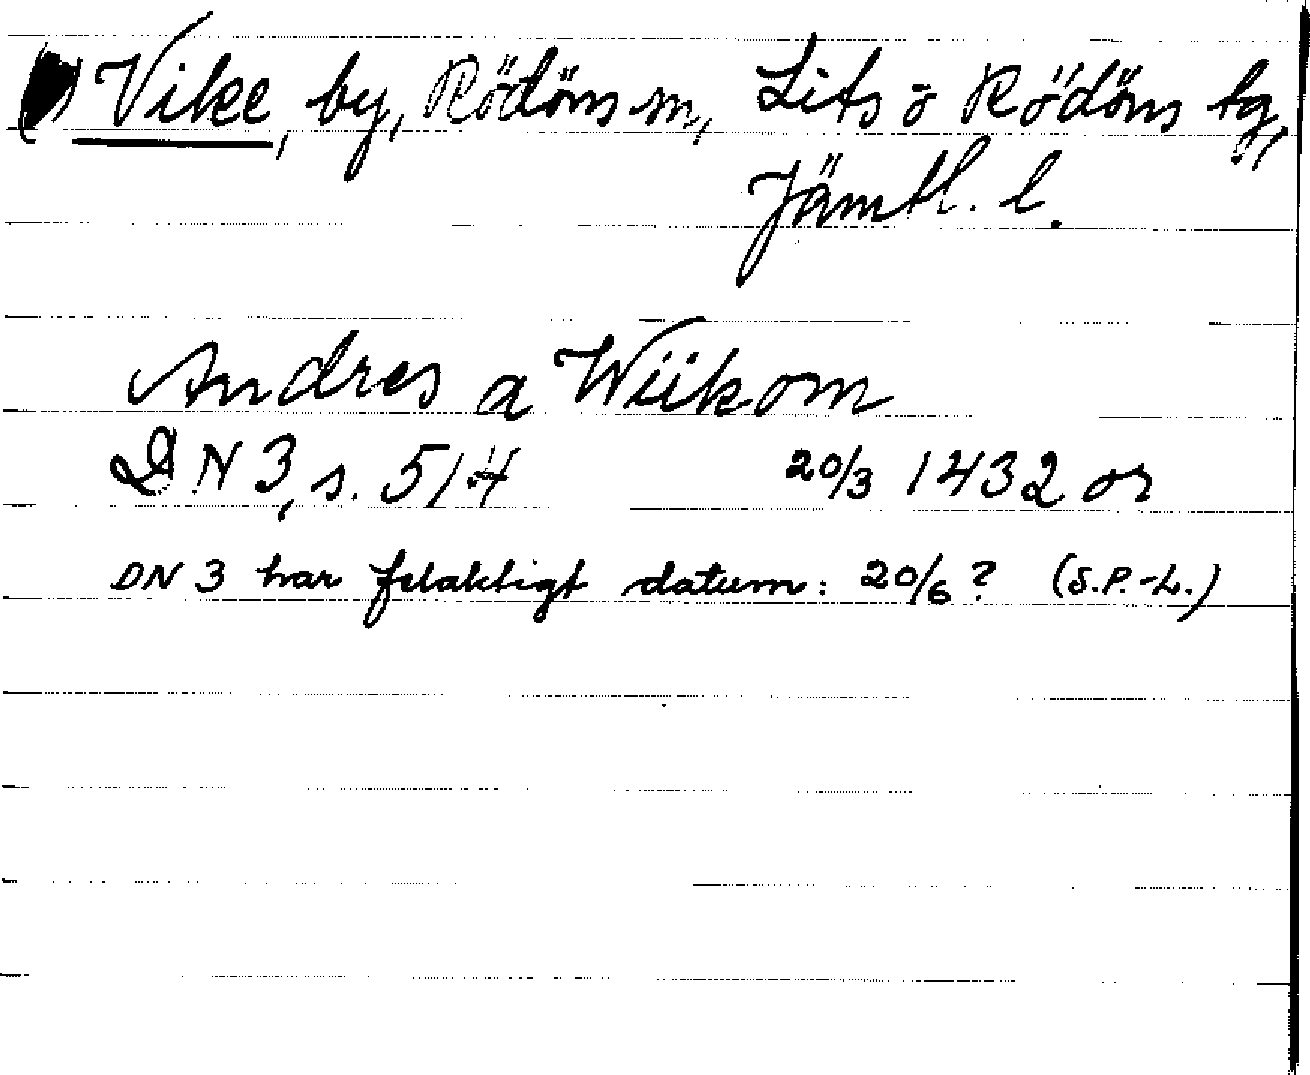 Vike, by, Rödöns sn, Lits o Rödöns tg,
Jämtl. l.
Andres a Wiikom
DN 3, s. 514 20/3 1432 or
DN 3 har felaktigt datum: 20/6? (S.P.-L.)